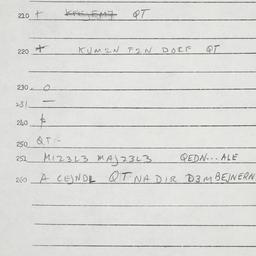 210 + QT
220 + KUM2N F2N DOEF QT
230 O
231 —
240
250 QT -
252 M1232L3 MAJ23L3 QEDN...ALE
260 A CEJNDL QT NADIR D3MBEJNERN